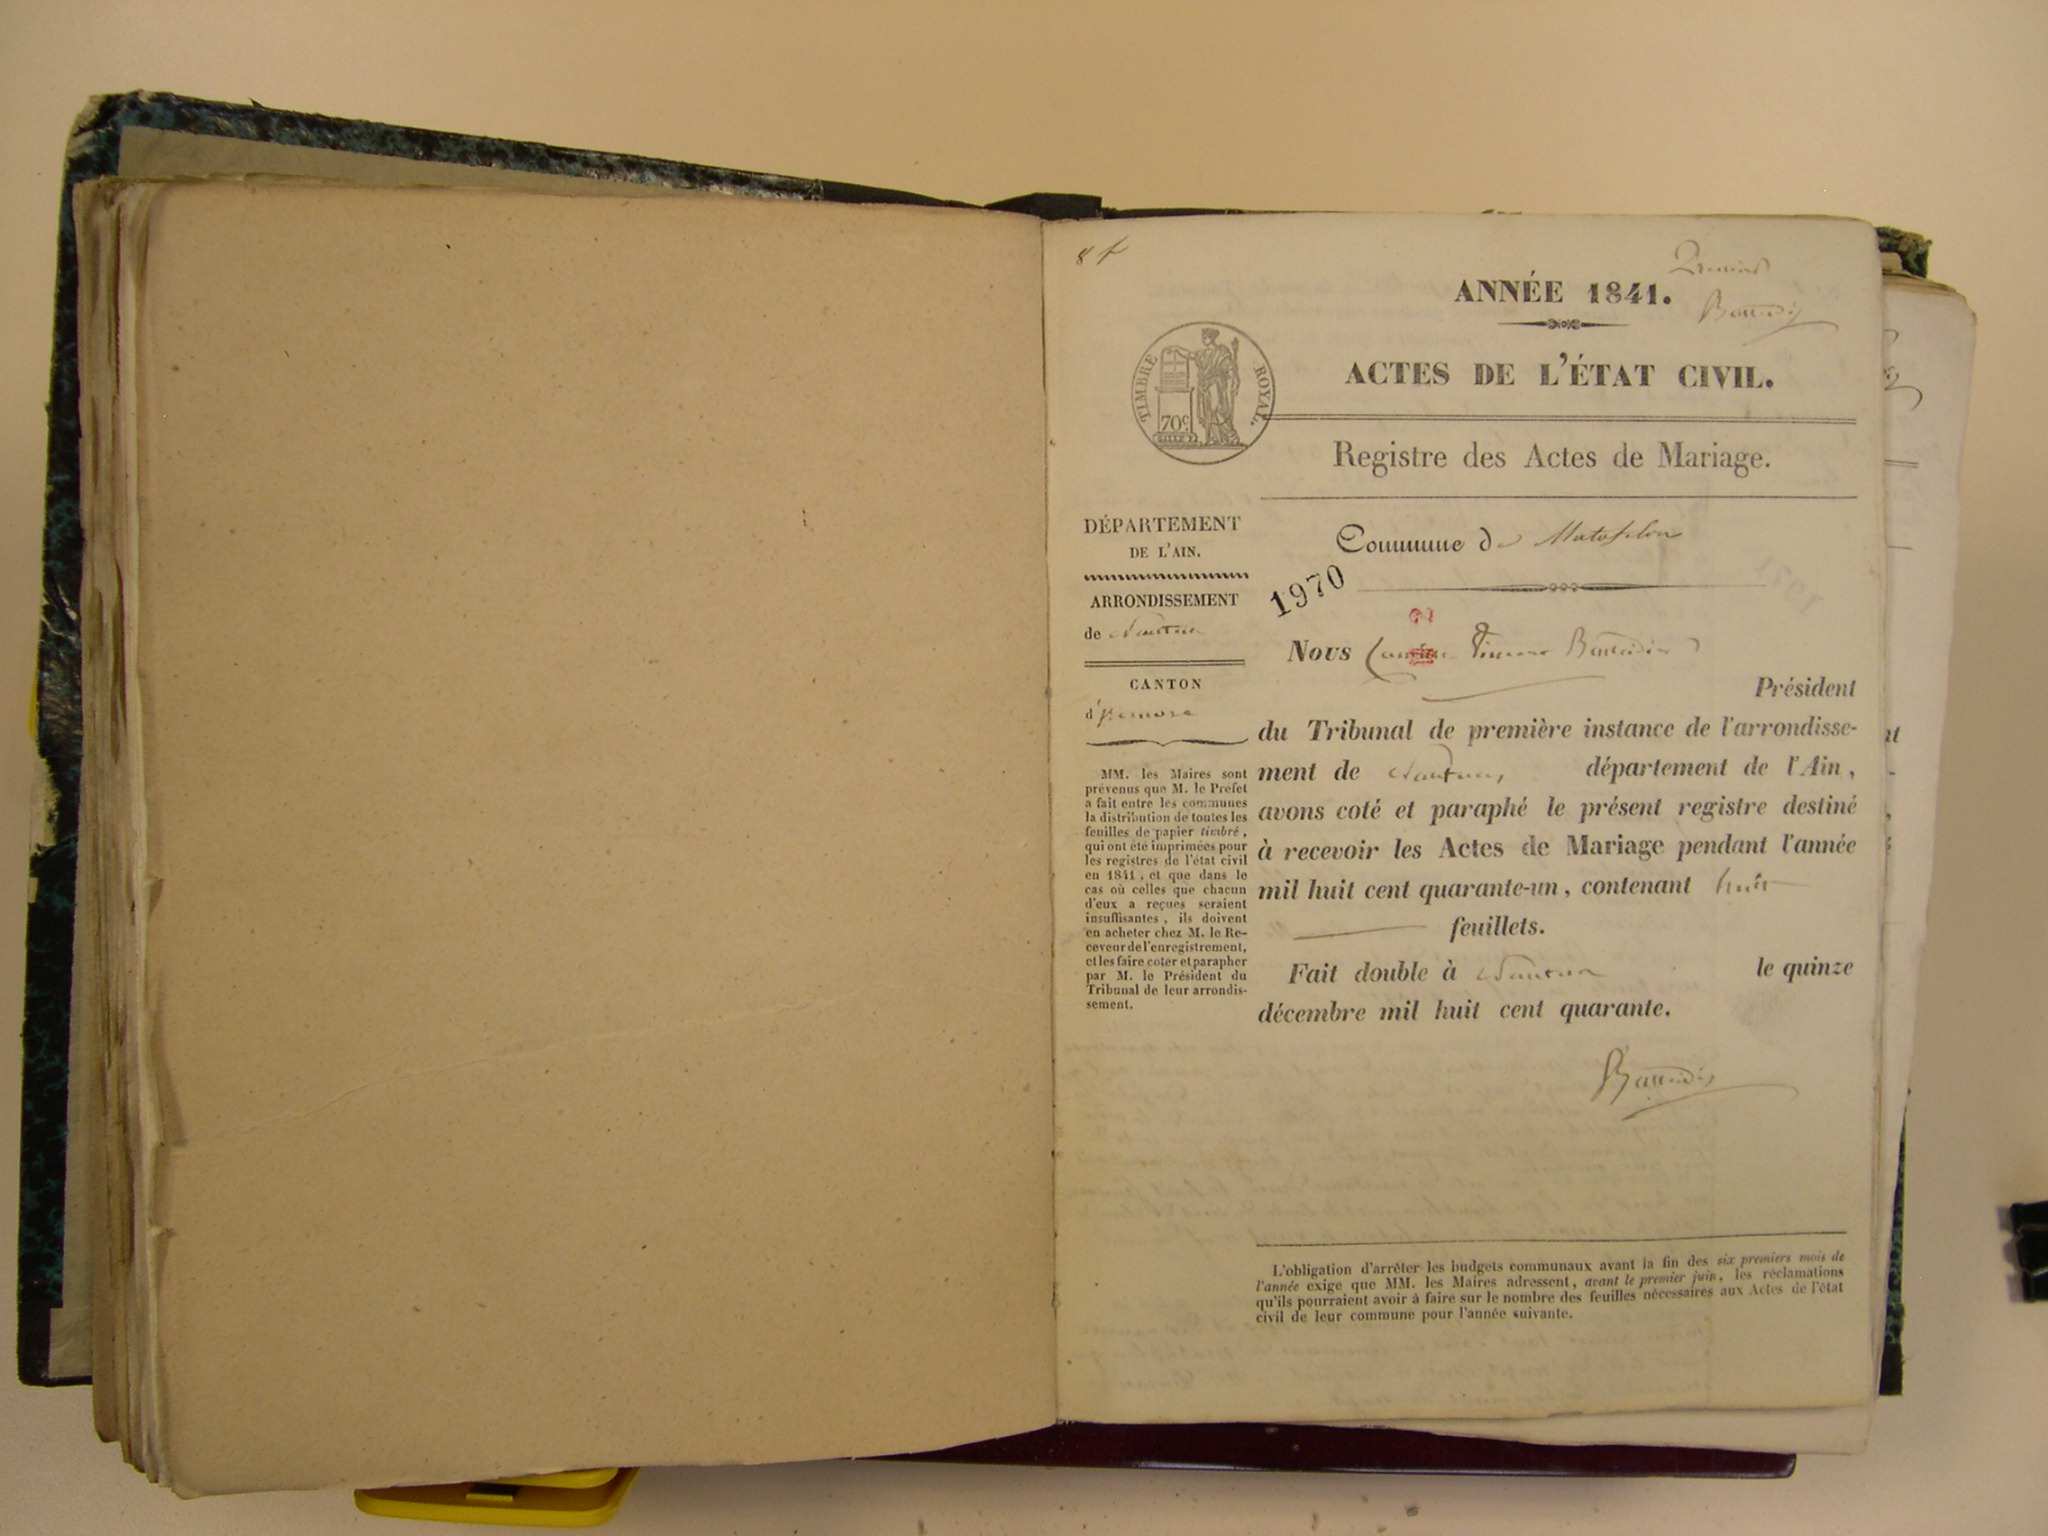 8 f
Premier
ANNÉE 1841.
Baudin
ACTES DE L'ÉTAT CIVIL.
TIMBRE ROYAL.
70c
Registre des Actes de Mariage.
DÉPARTEMENT
DE L'AIN.
ARRONDISSEMENT
de Nantua
CANTON
d'
MM. les Maires sont
prévenus que M. le Préfet
a fait entre les communes
la distribution de toutes les
feuilles de papier timbré,
qui ont été imprimées pour
les registres de l'état civil
en 1841, et que dans le
cas où celles que chacun
d'eux a reçues seraient
insuffisantes, ils doivent
en acheter chez M. le Re-
ceveur de l'enregistrement,
et les faire coter et parapher
par M. le Président du
Tribunal de leur arrondis-
sement.
Commune de Matafelon
1970
Nous
Président
du Tribunal de première instance de l'arrondisse-
ment de Nantua, département de l'Ain,
avons coté et paraphé le présent registre destiné
à recevoir les Actes de Mariage pendant l'année
mil huit cent quarante-un, contenant huit
feuillets.
Fait double à Nantua le quinze
décembre mil huit cent quarante.
Baudin
L'obligation d'arrêter les budgets communaux avant la fin des six premiers mois de
l'année exige que MM. les Maires adressent, avant le premier juin, les réclamations
qu'ils pourraient avoir à faire sur le nombre des feuilles nécessaires aux Actes de l'état
civil de leur commune pour l'année suivante.